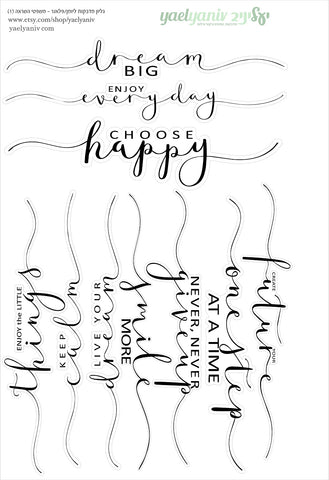 גליון מדבקות ליומן/פלאנר - משפטי השראה (1)
www.etsy.com/shop/yaelyaniv
yaelyaniv.com
yaelyaniv יעליניב
dream
BIG
ENJOY
everyday
CHOOSE
happy
ENJOY the LITTLE
things
KEEP
calm
LIVE YOUR
dream
smile
MORE
NEVER, NEVER
give up
one step
AT A TIME
CREATE YOUR
future